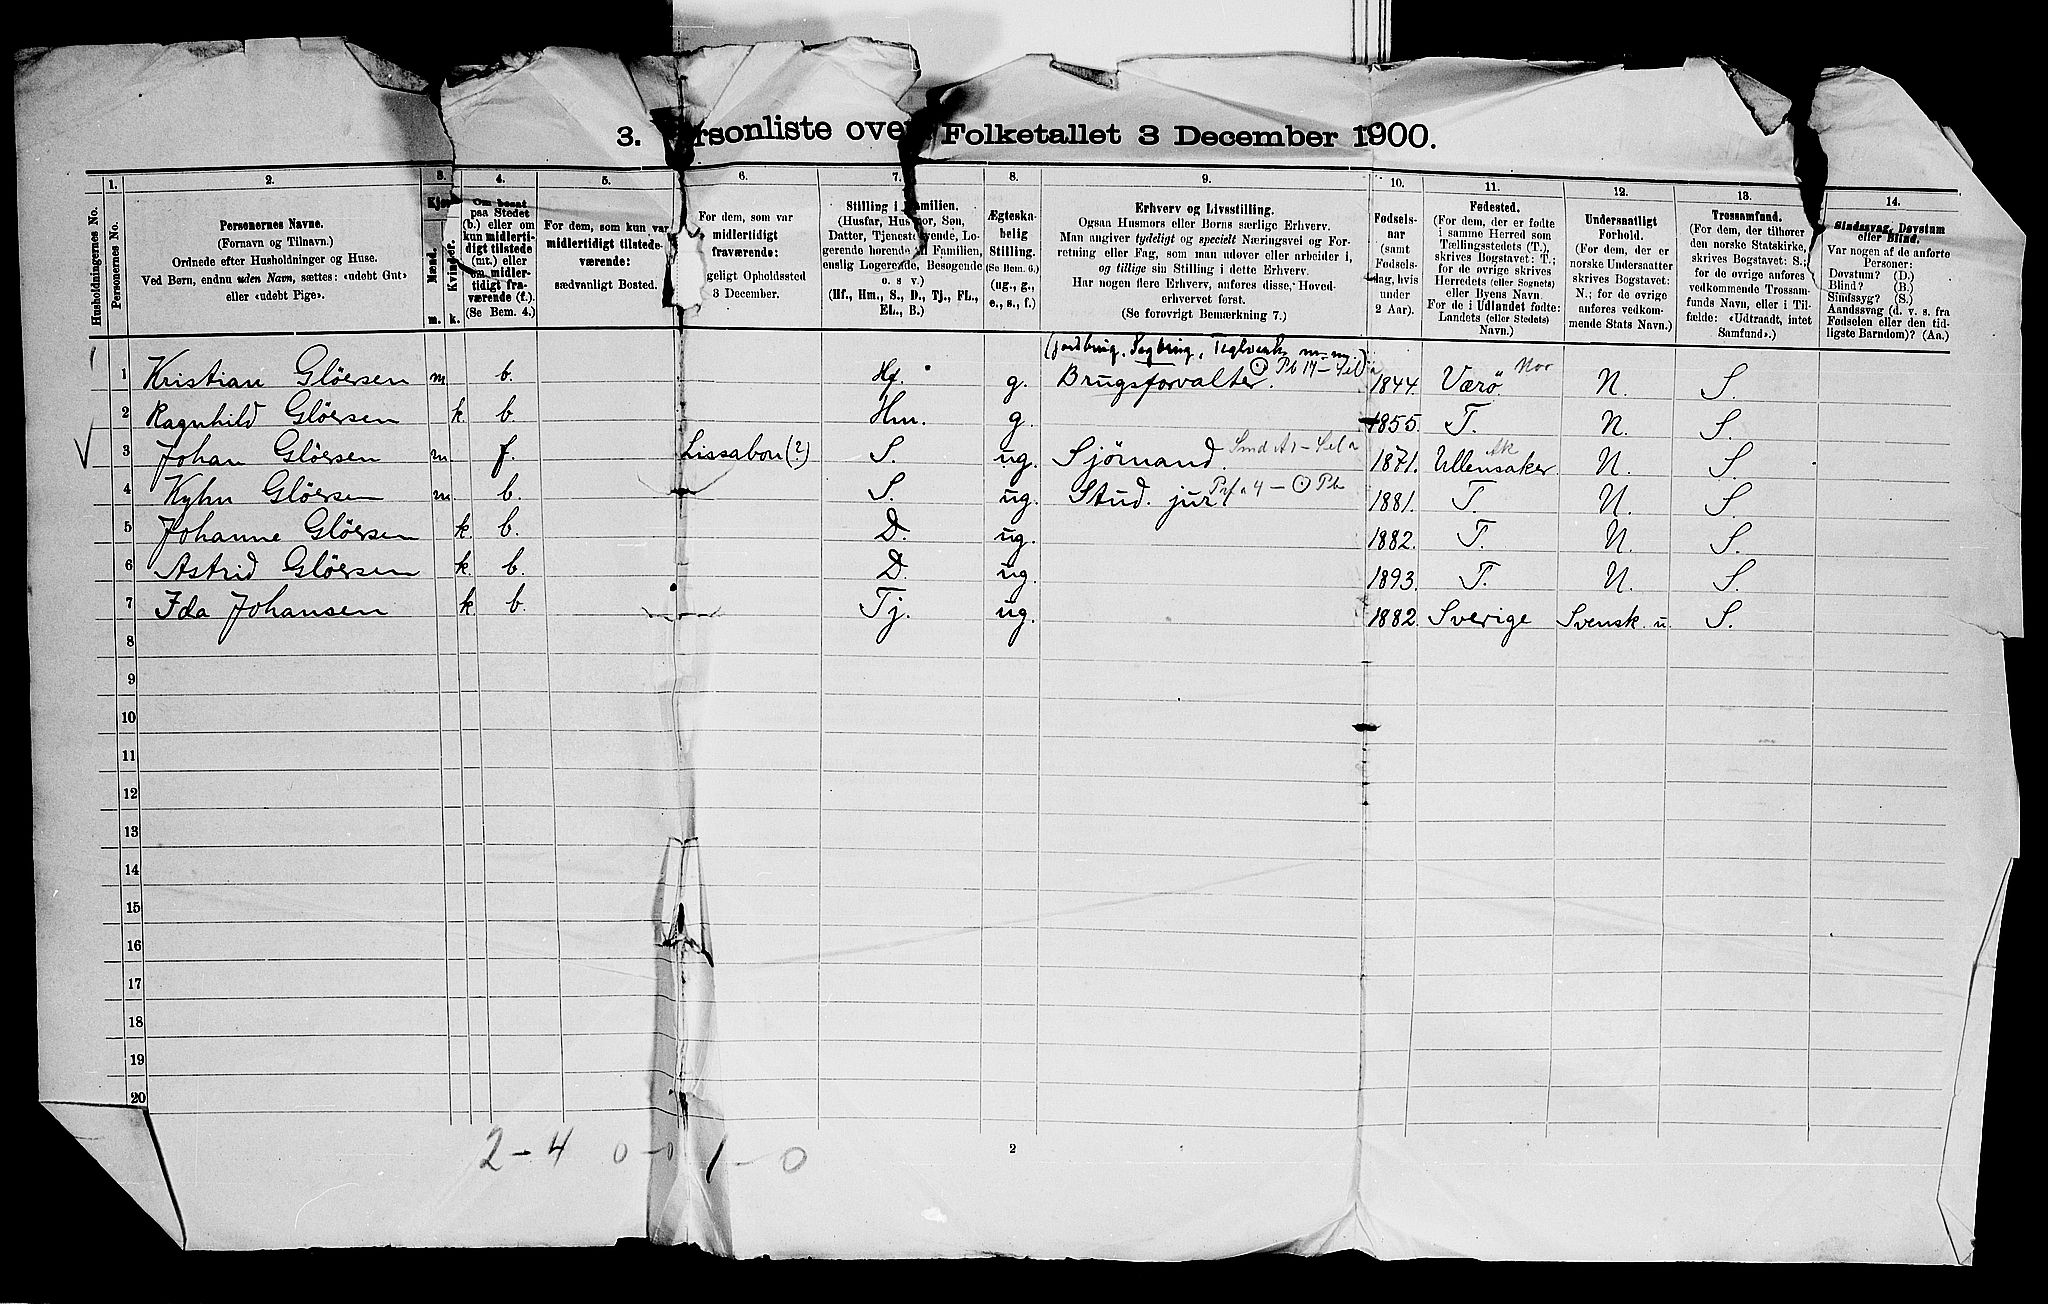 3. Personliste over Folketallet 3 December 1900.
Husholdningernes No.
1.
Personernes No.
2.
Personernes Navne.
(Fornavn og Tilnavn.)
Ordnede efter Husholdninger og Huse.
Ved Børn, endnu uden Navn, sættes: «udøbt Gut»
eller «udøbt Pige».
3.
Mænd.
m.
Kvinder.
k.
4.
Om bosat
paa Stedet
(b.) eller om
kun midlerti-
digt tilstede
(mt.) eller
om midler-
tidigt fra-
værende (f.).
(Se Bem. 4.)
5.
For dem, som kun var
midlertidigt tilstede-
værende:
sædvanligt Bosted.
6.
For dem, som var
midlertidigt
fraværende:
geligt Opholdssted
3 December.
7.
Stilling i Familien.
(Husfar, Husmor, Søn,
Datter, Tjenestetyende, Lo-
gerende hørende til Familien,
enslig Logerende, Besøgende
o. s v.)
(Hf., Hm., S., D., Tj., FL.,
EL., B.)
8.
Ægteska-
belig
Stilling.
(Se Bem. 6.)
(ug., g.,
e., s., f.)
9.
Erhverv og Livsstilling.
Ogsaa Husmors eller Børns særlige Erhverv.
Man angiver tydeligt og specielt Næringsvei og For-
retning eller Fag, som man udøver eller arbeider i,
og tillige sin Stilling i dette Erhverv.
Har nogen flere Erhverv, anføres disse, Hoved-
erhvervet først.
(Se forøvrigt Bemærkning 7.)
10.
Fødsels-
aar
(samt
Fødsels-
dag, hvis
under
2 Aar).
11.
Fødested.
(For dem, der er fødte
i samme Herred som
Tællingsstedets (T.),
skrives Bogstavet: T.;
for de øvrige skrives
Herredets (eller Sognets)
eller Byens Navn.
For de i Udlandet fødte:
Landets (eller Stedets)
Navn.)
12.
Undersaatligt
Forhold.
(For dem, der er
norske Undersaatter
skrives Bogstavet:
N.; for de øvrige
anføres vedkom-
mende Stats Navn.)
13.
Trossamfund.
(For dem, der tilhører
den norske Statskirke,
skrives Bogstavet: S.;
for de øvrige anføres
vedkommende Trossam-
funds Navn, eller i Til-
fælde: «Udtraadt, intet
Samfund».)
14.
Sindssvag, Døvstum
eller Blind.
Var nogen af de anførte
Personer:
Døvstum? (D.)
Blind? (B.)
Sindssyg? (S.)
Aandssvag (d. v. s. fra
Fødselen eller den tid-
ligste Barndom)? (Aa.)
(Jordbrug, Sagbrug, Teglverk m. m.)
1 Kristian Glöersen m b. Hf. g. Brugsforvalter. 1844. Værö. Nor N. S.
2 Ragnhild Glöersen k. b. Hm. g. 1855. T. N. S.
3 Johan Glöersen m f. Lissabon (?) S. ug. Sjömand. 1871. Ullensaker. Ak N. S.
4 Kyhn Glöersen m b. S. ug. Stud. jur. 1881. T. N. S.
5 Johanne Glöersen k b. D. ug. 1882. T. N. S.
6 Astrid Glöersen k. b. D. ug. 1893. T. N. S.
7 Ida Johansen k. b. Tj. ug. 1882. Sverige Svensk u. S.
8
9
10
11
12
13
14
15
16
17
18
19
20
2-4 0-0 1-0
2